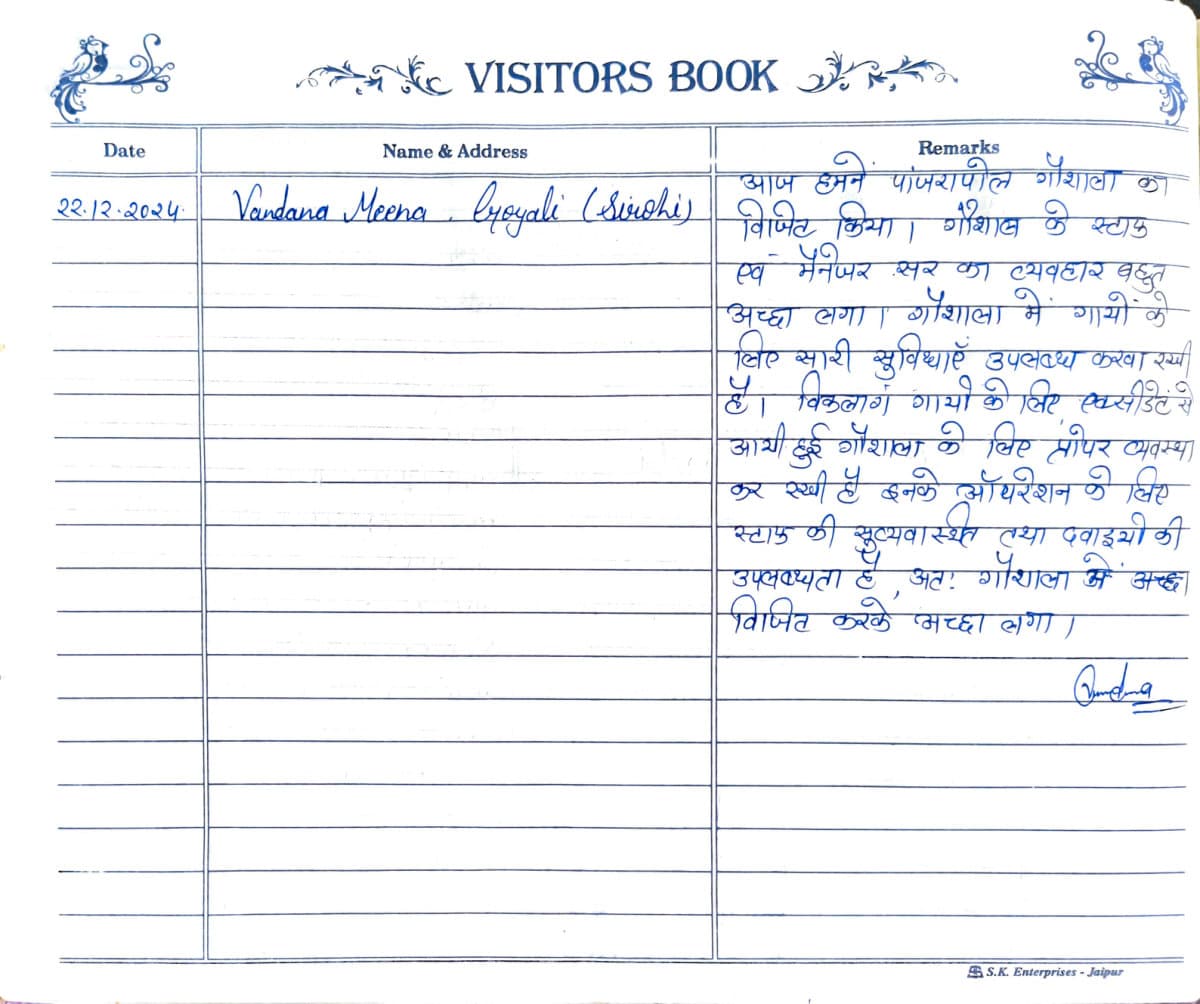 VISITORS BOOK
Date Name & Address Remarks
22.12.2024 Vandana Meena. Goyali (Sirohi)
आज हमने पांजरापोल गौशाला का
विजिट किया। गौशाल के स्टाफ
एवं मैनेजर सर का व्यवहार बहुत
अच्छा लगा। गौशाला में गायों के
लिए सारी सुविधाएँ उपलब्ध करवा रखी
है। विकलागं गायो के लिए एक्सीडेंट से
आयी हुई गौशाला के लिए प्रोपर व्यवस्था
कर रखी है इनके ऑपरेशन के लिए
स्टाफ की सुव्यवास्थित तथा दवाइयो की
उपलब्धता है, अतः गौशाला में अच्छा
विजिट करके अच्छा लगा।
Vandana
S.K. Enterprises - Jaipur